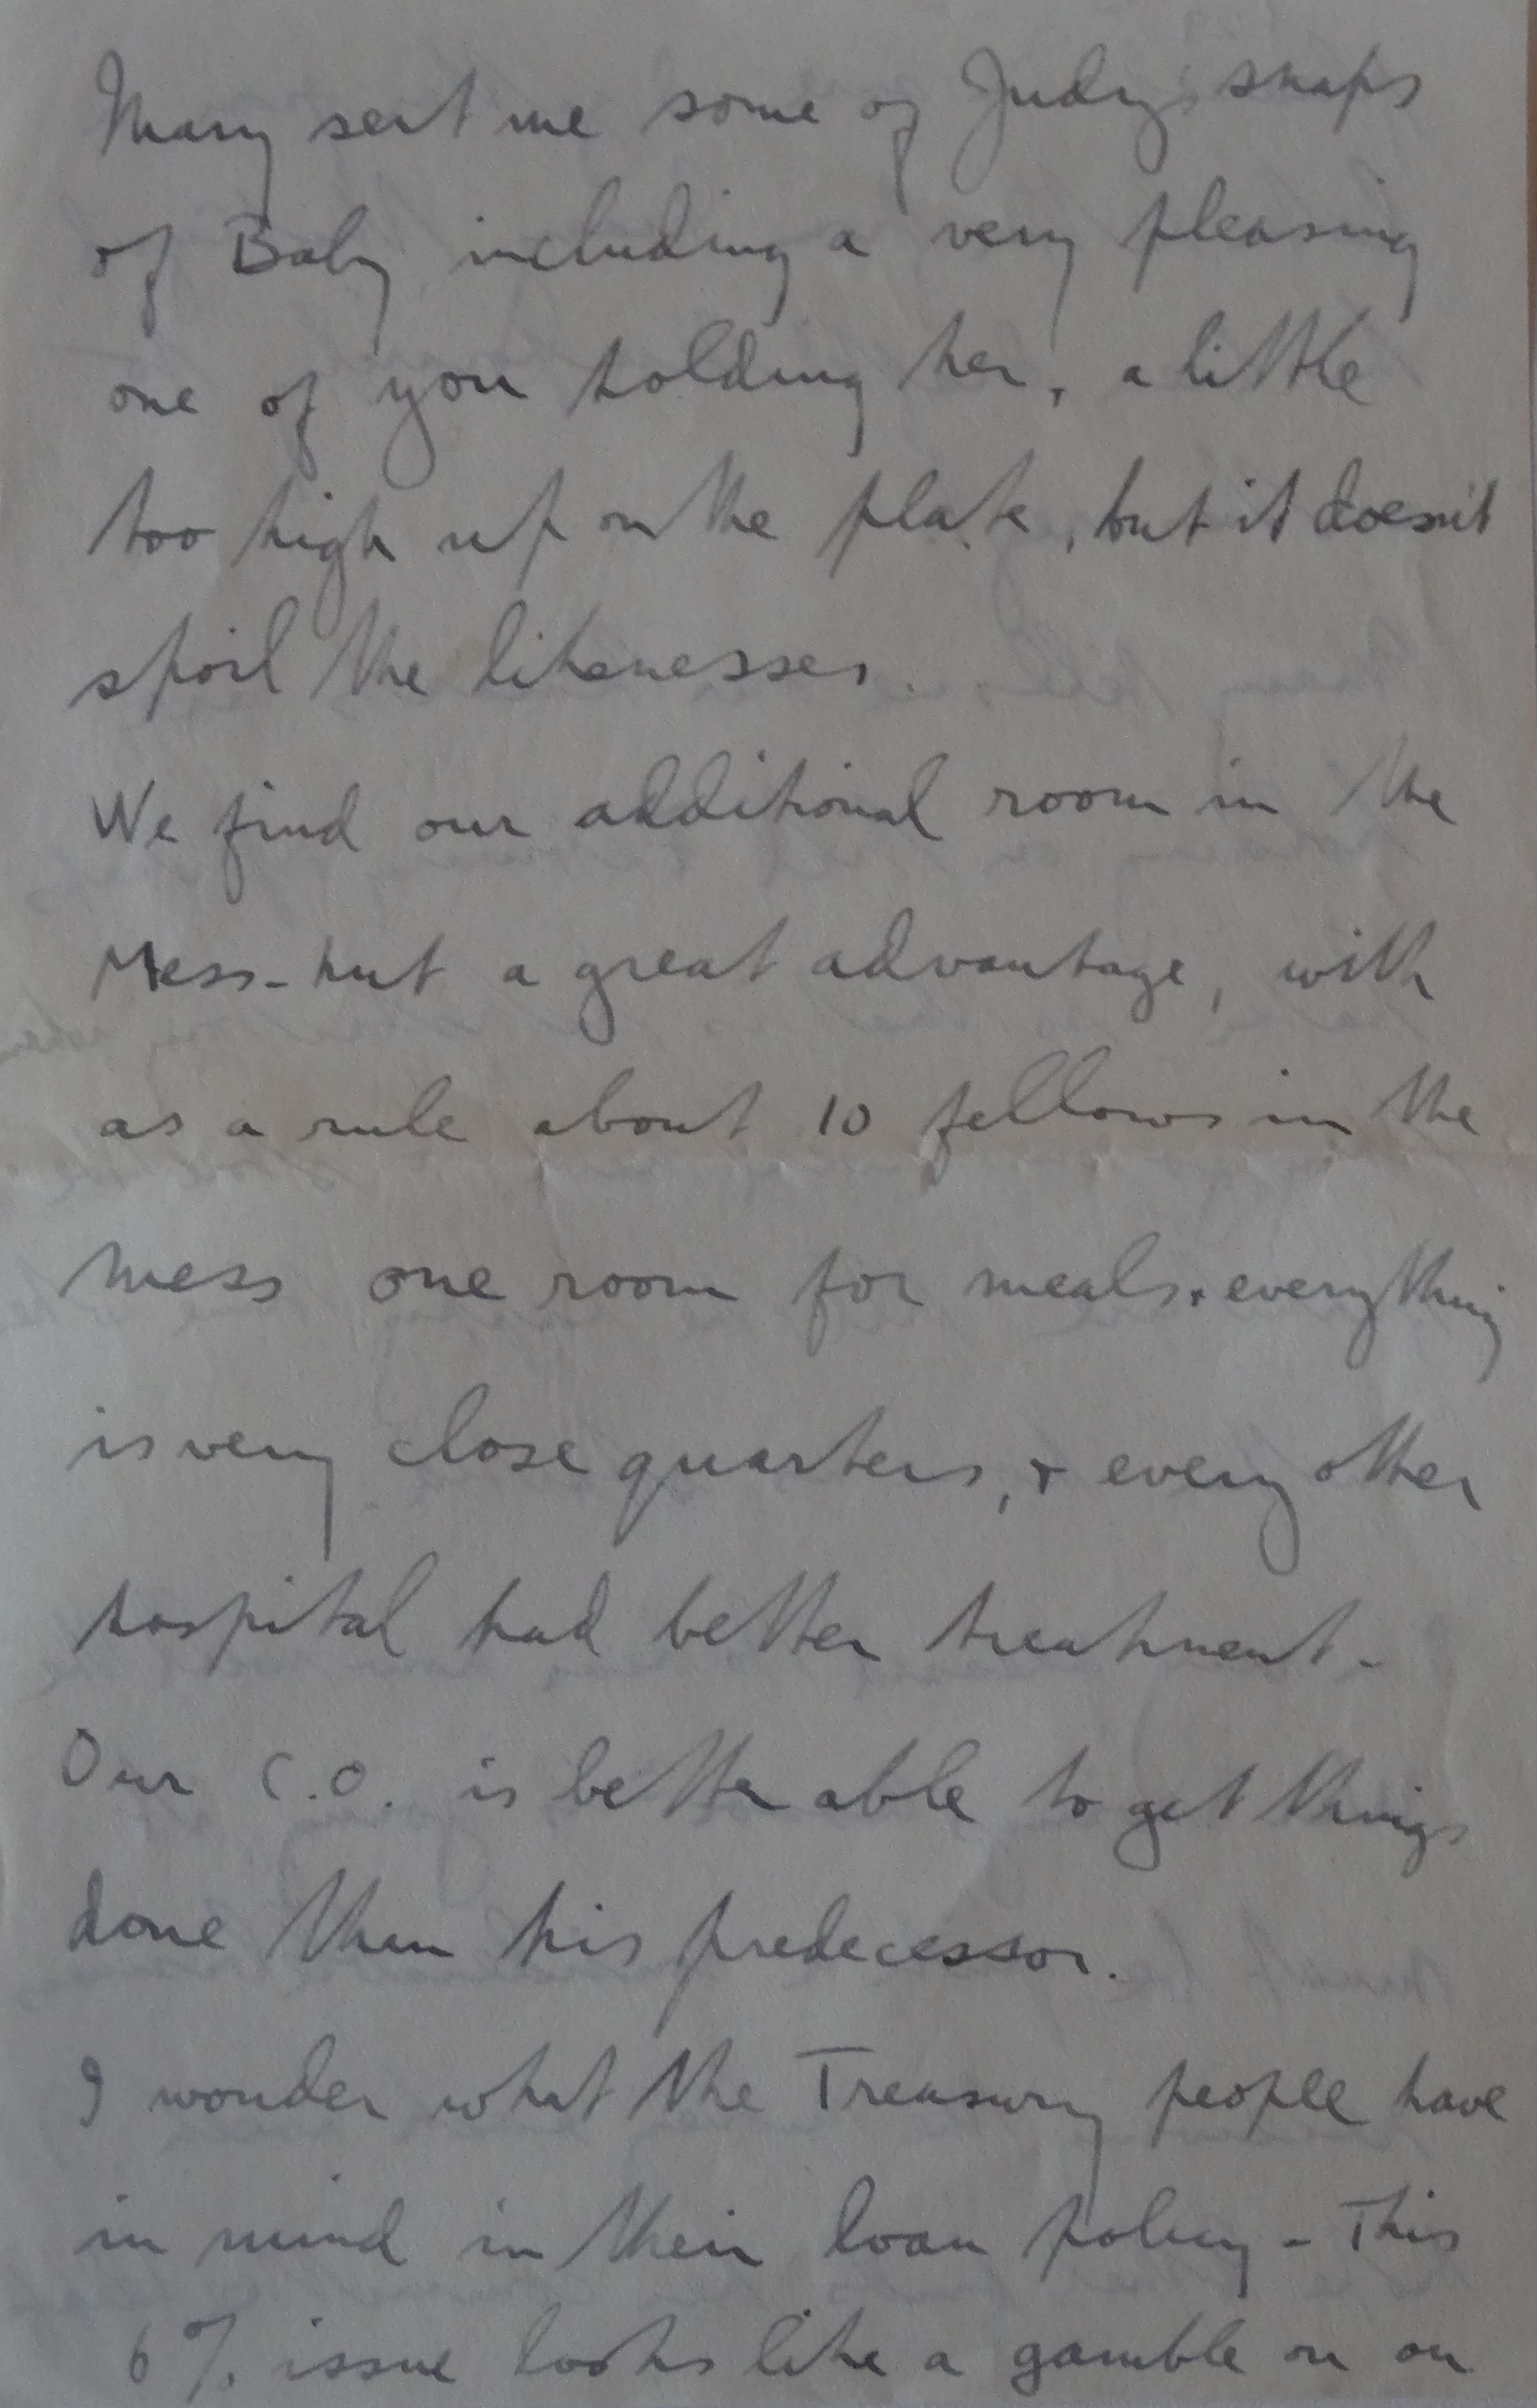 Mary sent me some of Judy's snaps
of Baby including a very pleasing
one of you holding her, a little
too high up on the plate, but it doesn't
spoil the likenesses.
We find our additional room in the
Mess-hut a great advantage, with
as a rule about 10 fellows in the
mess one room for meals & everything
is very close quarters, & every other
hospital had better treatment -
Our C.O. is better able to get things
done than his predecessor.
I wonder what the Treasury people have
in mind in their loan policy - This
6% issue looks like a gamble on an